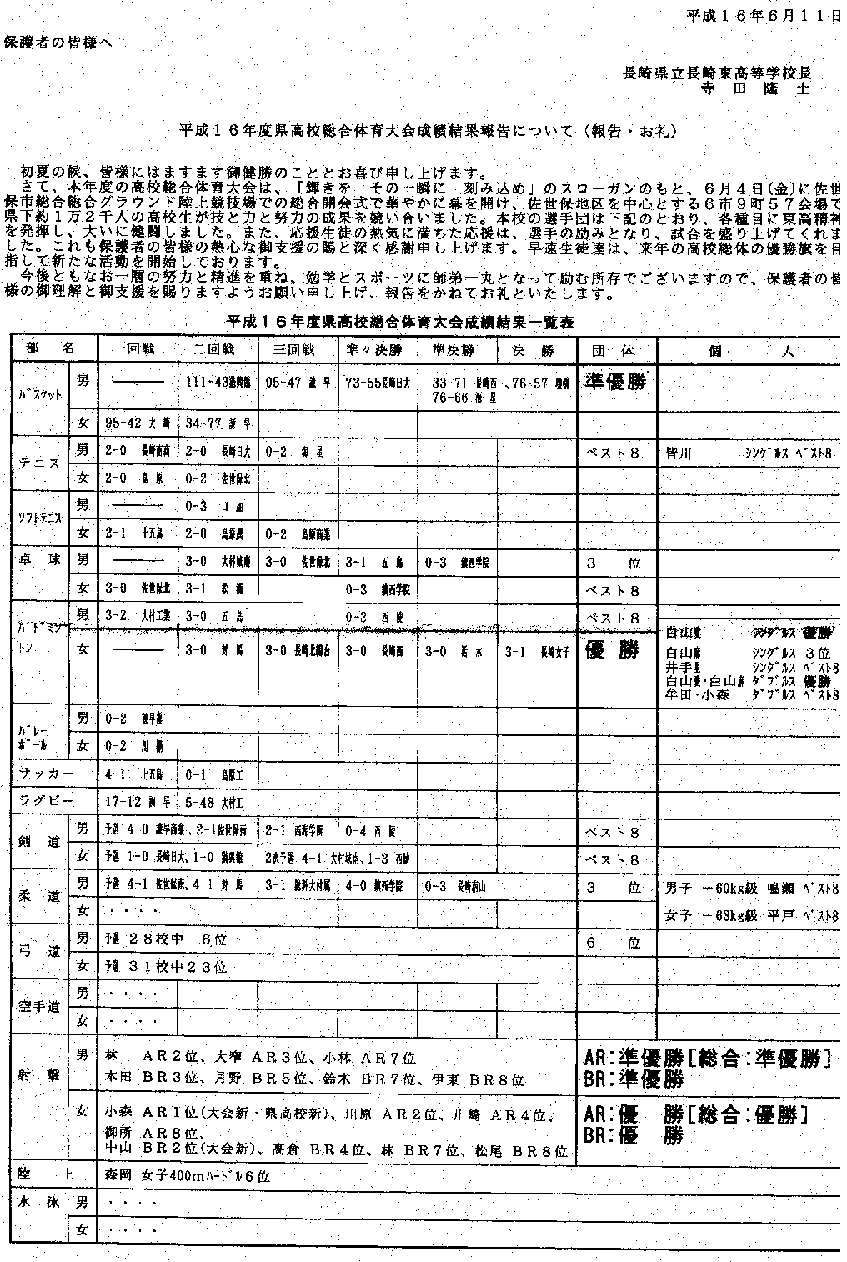 平成16年6月11日
保護者の皆様へ
長崎県立長崎東高等学校長
寺田隆士
平成16年度県高校総合体育大会成績結果報告について（報告・お礼）
初夏の候、皆様にはますます御健勝のこととお喜び申し上げます。
さて、本年度の高校総合体育大会は、「輝きを その一瞬に 刻み込め」のスローガンのもと、6月4日(金)に佐世
保市総合グラウンド陸上競技場での総合開会式で華やかに幕を開け、佐世保地区を中心とする6市9町57会場で
県下約1万2千人の高校生が技と力と努力の成果を競い合いました。本校の選手団は下記のとおり、各種目に東高精神
を発揮し、大いに健闘しました。また、応援生徒の熱気に満ちた応援は、選手の励みとなり、試合を盛り上げてくれま
した。これも保護者の皆様の熱心な御支援の賜と深く感謝申し上げます。早速生徒達は、来年の高校総体の優勝旗を目
指して新たな活動を開始しております。
今後ともなお一層の努力と精進を重ね、勉学とスポーツに師弟一丸となって励む所存でございますので、保護者の皆
様の御理解と御支援を賜りますようお願い申し上げ、報告をかねてお礼といたします。
平成16年度県高校総合体育大会成績結果一覧表
部 名 一回戦 二回戦 三回戦 準々決勝 準決勝 決 勝 団 体 個 人
バスケット 男 ――― 111-43 95-47 諫 早 73-55 長崎日大 33-71 長崎西 、76-57 準優勝
76-66 海 星
女 95-42 大 崎 34-77 諫 早
テニス 男 2-0 長崎南商 2-0 長崎日大 0-2 海 星 ベスト8 皆川 シングルス ベスト8
女 2-0 島 原 0-2 佐世保北
ソフトテニス 男 ――― 0-3
女 2-1 上五島 2-0 島原農 0-2 島原商業
卓 球 男 ――― 3-0 大村城南 3-0 佐世保北 3-1 五 島 0-3 鎮西学院 3 位
女 3-0 佐世保北 3-1 松 浦 0-3 鎮西学院 ベスト8
バドミントン 男 3-2 大村工業 3-0 五 島 0-3 西 陵 ベスト8
女 ――― 3-0 対 馬 3-0 長崎北陽台 3-0 長崎商 3-0 3-1 長崎女子 優 勝
白山 シングルス 優勝
白山 シングルス 3位
井手 シングルス ベスト8
白山・白山 ダブルス 優勝
牟田・小森 ダブルス ベスト8
バレーボール 男 0-2 諫早農
女 0-2
サッカー 4-1 上五島 0-1 島原工
ラグビー 17-12 諫 早 5-48 大村工
剣 道 男 予選 4-0 諫早商業、2-1 佐世保南 2-1 西海学園 0-4 西 陵 ベスト8
女 予選 1-0 長崎日大、1-0 2次予選 4-1 大村城南、1-3 西陵 ベスト8
柔 道 男 予選 4-1 佐世保南、4-1 対 馬 3-1 総科大附属 4-0 鎮西学院 0-3 長崎南山 3 位 男子 -60kg級 鳴瀬 ベスト8
女 ・・・・ 女子 -63kg級 平戸 ベスト8
弓 道 男 予選 28校中 6位 6 位
女 予選 31校中23位
空手道 男 ・・・・
女 ・・・・
射 撃 男 林 AR2位、大窄 AR3位、小林 AR7位 AR:準優勝[総合:準優勝]
本田 BR3位、月野 BR5位、鈴木 BR7位、伊東 BR8位 BR:準優勝
女 小森 AR1位(大会新・県高校新)、川原 AR2位、川崎 AR4位、 AR:優 勝[総合:優勝]
御所 AR8位、 BR:優 勝
中山 BR2位(大会新)、高倉 BR4位、林 BR7位、松尾 BR8位
陸 上 森岡 女子400mハードル6位
水 泳 男 ・・・・
女 ・・・・